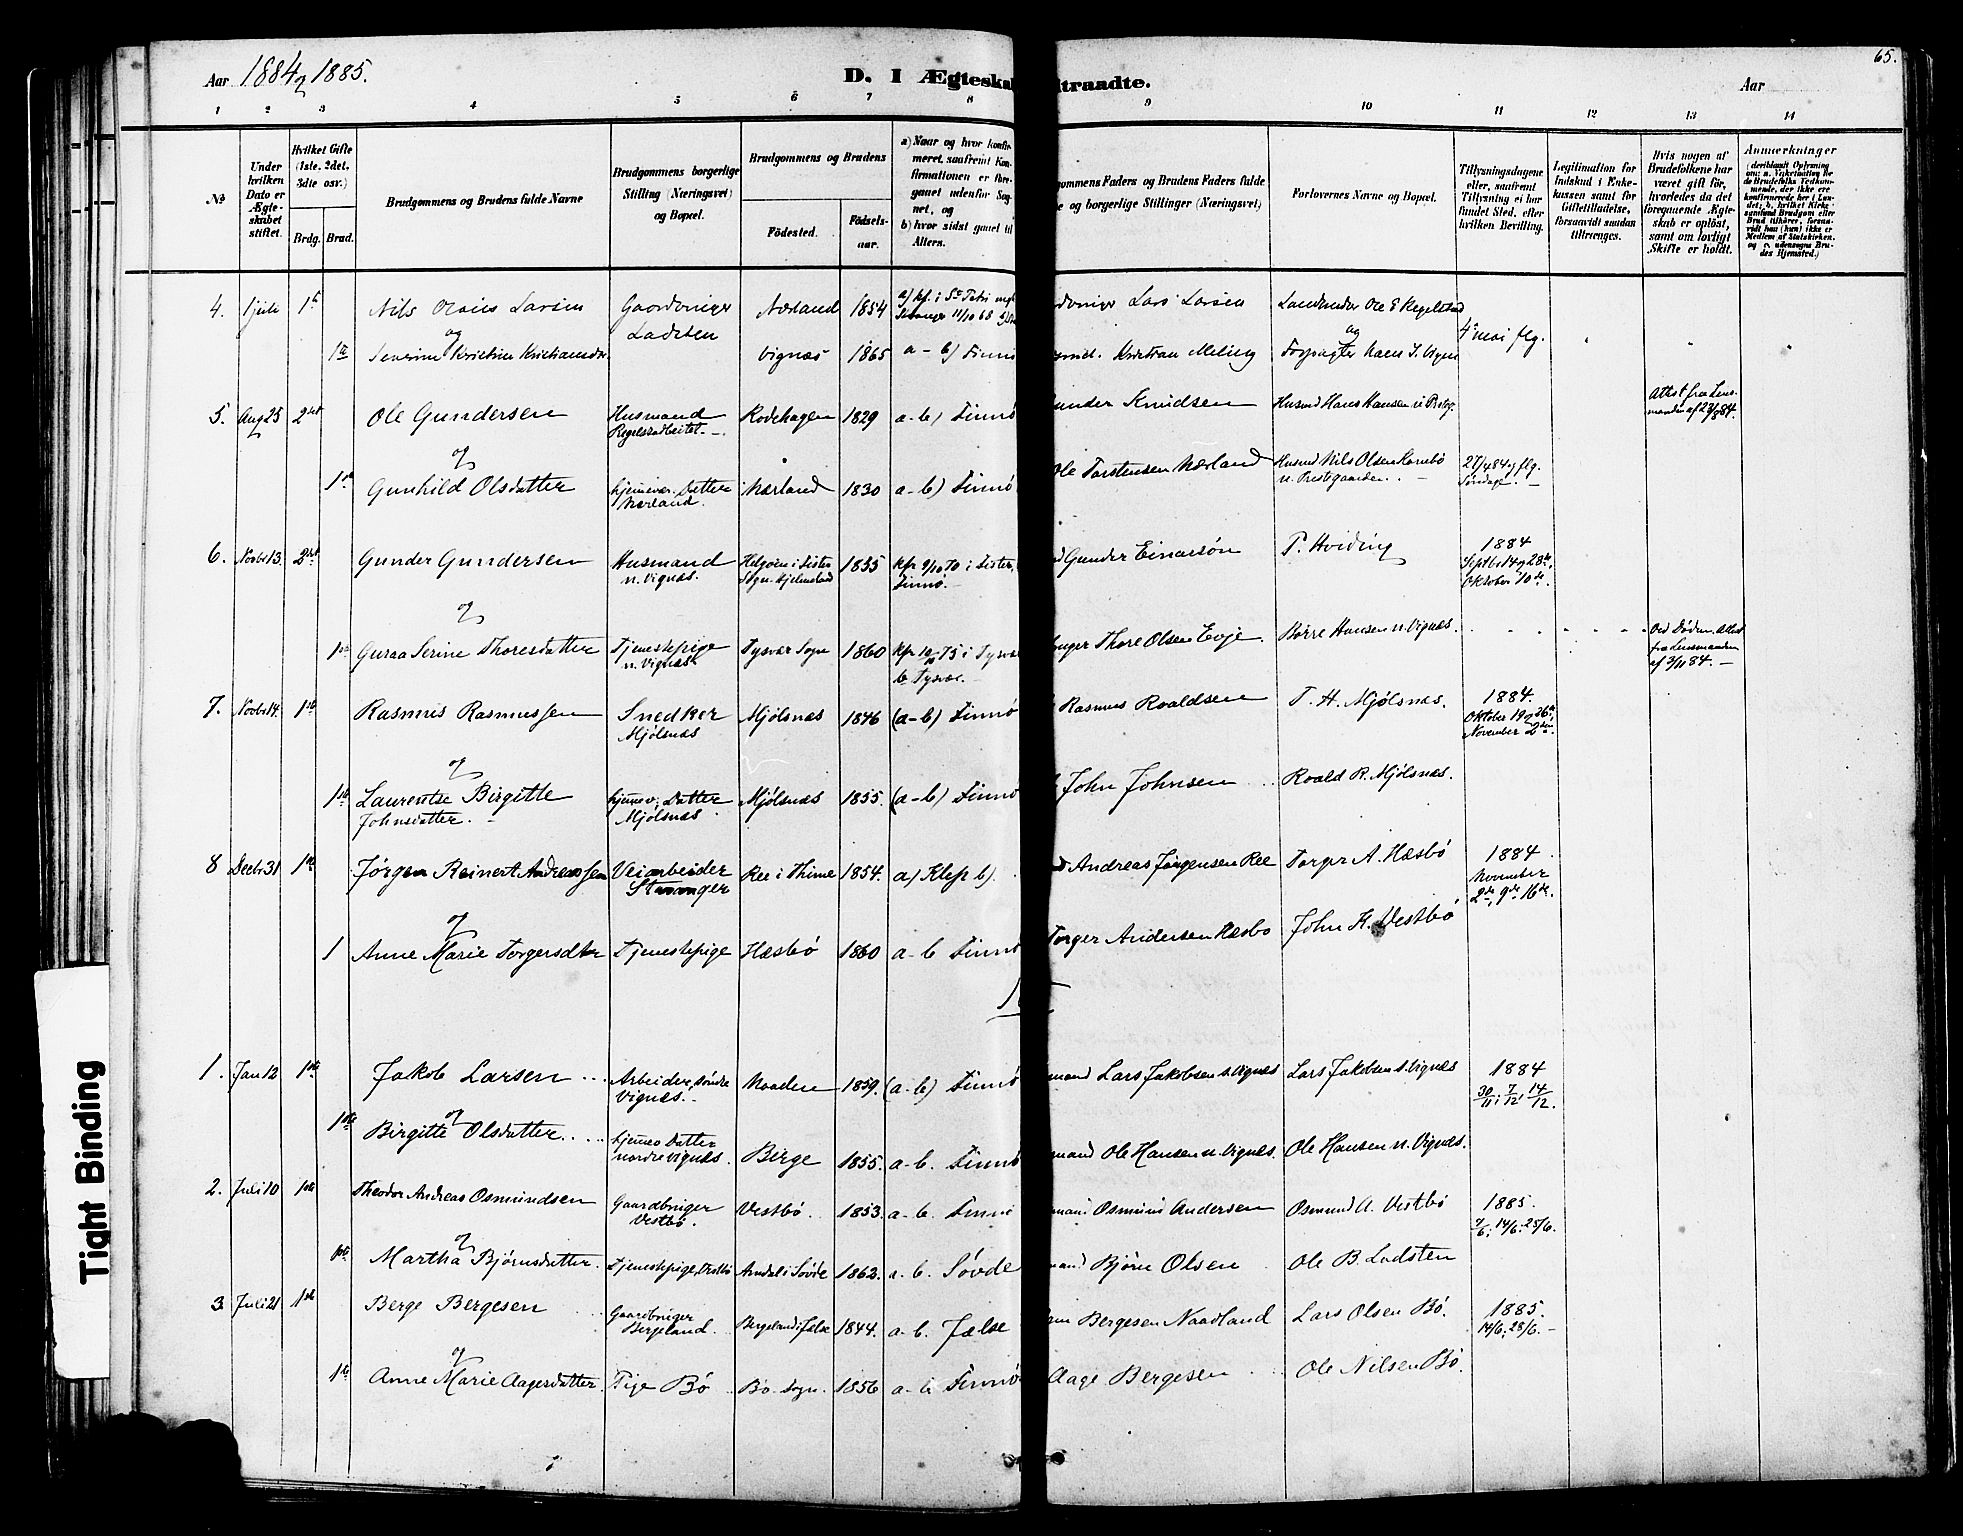 Aar 1884 og 1885.
D. I Ægteska
dtraadte.
Aar
65.
1 2 3 4 5 6 7 8 9 10 11 12 13 14
No
Under hvilken Dato er Ægteskabet stiftet.
Hvilket Gifte (1ste, 2det, 3die osv.)
Brdg. Brud.
Brudgommens og Brudens fulde Navne
Brudgommens borgerlige Stilling (Næringsvei) og Bopæl.
Brudgommens og Brudens
Födested.
Födselsaar.
a) Naar og hvor konfirmeret, saafremt Konfirmationen er foregaaet udenfor Sognet, og
b) hvor sidst gaaet til Alters.
gommens Faders og Brudens Faders fulde
e og borgerlige Stillinger (Næringsvei)
Forlovernes Navne og Bopæl.
Tillysningsdagene eller, saafremt Tillysning ei har fundet Sted, efter hvilken Bevilling.
Legitimation for Indskud i Enkekassen samt for Giftetilladelse, forsaavidt saadan tiltrænges.
Hvis nogen af Brudefolkene har været gift før, hvorledes da det foregaaende Ægteskab er oplöst, samt om lovligt Skifte er holdt.
Anmærkninger
4. 1 juli 1ste Nils Larsen Gaardbruger Ladsten Nærland 1854
dbruger Lars Larsen
og
1ste Severine Kristine Vignæs 1865 a-b) Finnö
Kristian Meling
4de mai flg.
5. Aug 25 2det Ole Gundersen Husmand Rodehagen 1829 a-b) Finnö
under Knudsen Husmd Hans Hansen
Attest fra Lensmanden af 23/8 84.
og
1ste Gunhild Olsdatter hjemmevær. Datter Nærland. Nærland 1830 a-b) Finnö
Ole Torstensen Nærland Husmd Nils Olsen
n. Prestegaarden.
27/4 84 og flg. Søndage.
6. Novbr 13. 2det Gunder Gundersen Husmand n. Vignæs. 1835 Finnö.
Gunder Einarsön T. Hviding
1884
Septbr 14 og 28de, Oktober 10de.
og
1ste Guraa Serine Thoresdatter Tjenestepige n. Vignæs Tysvær Sogn 1860
b Tysvær.
Thore Olsen Evje. Börre Hansen n. Vignæs.
Ved Döden. Attest fra Lensmanden af 3/11 84.
7. Novbr 14. 1ste Rasmus Rasmussen Snedker Mjölsnæs Mjölsnæs 1846 (a-b) Finnö
Rasmus Roaldsen T. H. Mjölsnæs.
1884.
Oktober 19 og 26de, November 2den.
og
1ste Laurentse Birgitte Johnsdatter. hjemmev. Datter Mjölsnæs Mjölsnæs 1855. (a-b) Finnö
John Johnsen Roald R. Mjölsnæs.
8 Decbr 31 1ste Jörgen Reinert Andreassen Veiarbeider Stavanger Ree i Thime 1854. a) Klep b).
Andreas Jörgensen Ree Torger A. Hæsbö
1884
November 2de, 9de, 16de.
og
1 Anne Marie Torgersdtr Tjenestepige Hæsbö 1860 a-b Finnö
Torger Andersen Hæsbö John H. Vestbö
1. Jan 12 1ste Jakob Larsen Arbeider, söndre Vignæs. Naaden 1859. (a-b) Finnö
mand Lars Jakobsen s. Vignæs Lars Jakobsen s. Vignæs
1884
30/11; 7/12; 14/12.
og
1ste Birgitte Olsdatter hjemmev Datter nordre Vignæs. Berge 1855. a-b. Finnö
mand Ole Hansen n. Vignæs. Ole Hansen n. Vignæs.
2. Juli 10 1ste Theodor Andreas Osmundsen Gaardbruger Vestbö. Vestbö. 1853. a-b. Finnö
Osmund Andersen Osmund A. Vestbö
1885.
7/6; 14/6; 28/6.
og
1ste Martha Bjørnsdatter. Tjenestepige, Vestbö Aardal i Sövde 1862. a-b. Sövde
mand Bjørn Olsen Ole B. Ladsten
3. Juli 21 1ste Berge Bergesen Gaardbruger Bergeland. Bergeland i Jælse 1844. a-b. Jælse
Bergesen Naadland Lars Olsen Bö.
1885.
14/6; 28/6.
og
1ste Anne Marie Aagesdatter. Pige Bö Bö. Sogn. 1856 a-b Finnö
Aage Bergesen Ole Nilsen Bö.
Tight Binding